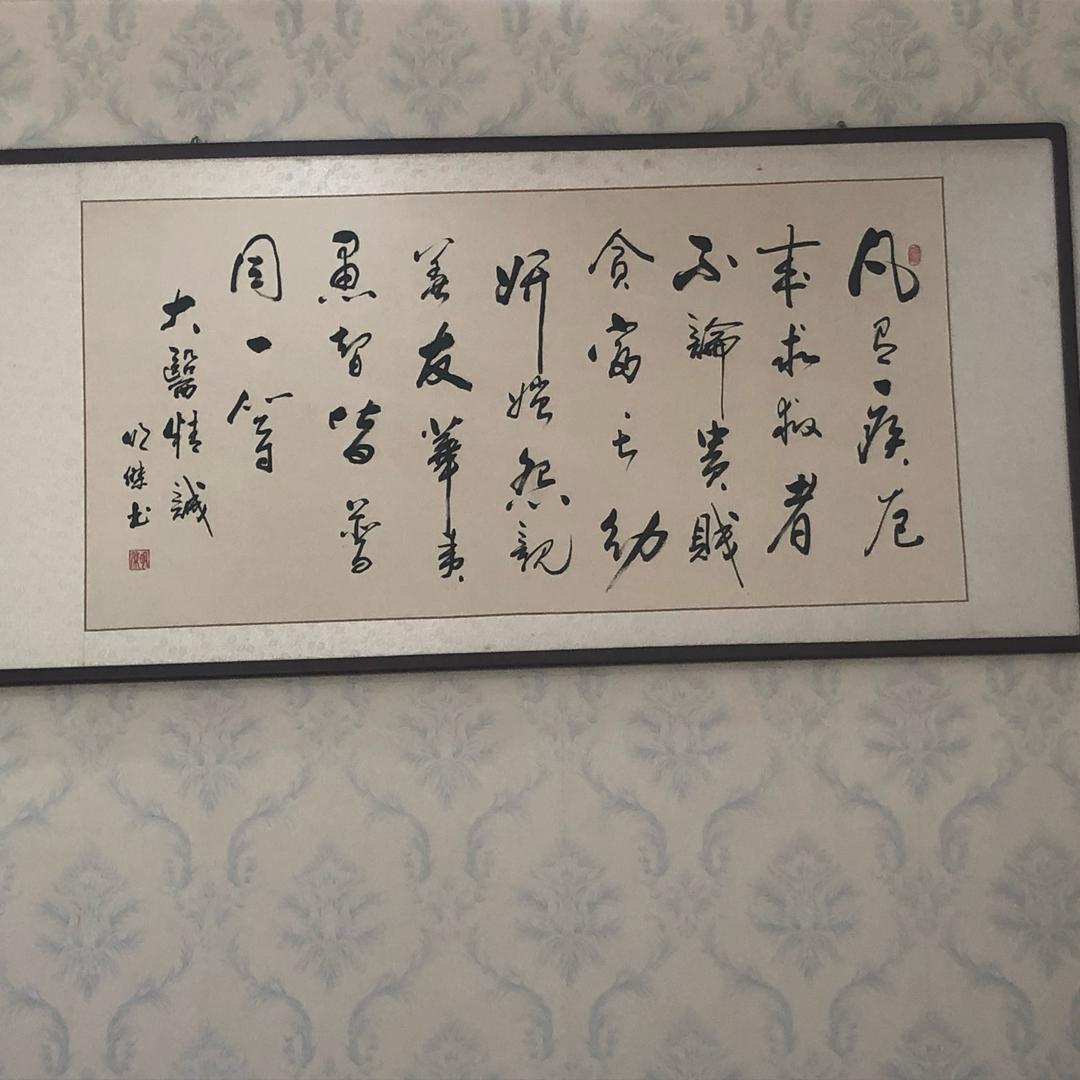 凡有疾厄
来求救者
不論貴賤
貧富长幼
妍媸怨親
善友華夷
愚智皆普
同一等
大醫精誠
傑书